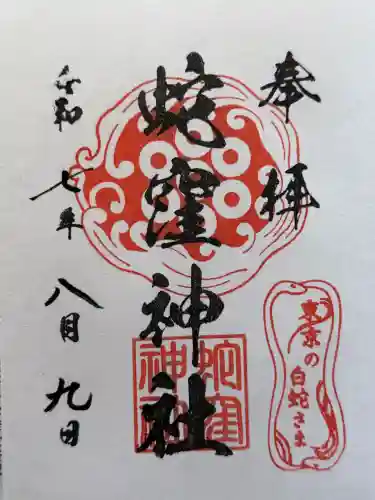 奉拝
蛇窪神社
令和七年八月九日
蛇窪
神社
東京の
白蛇さま